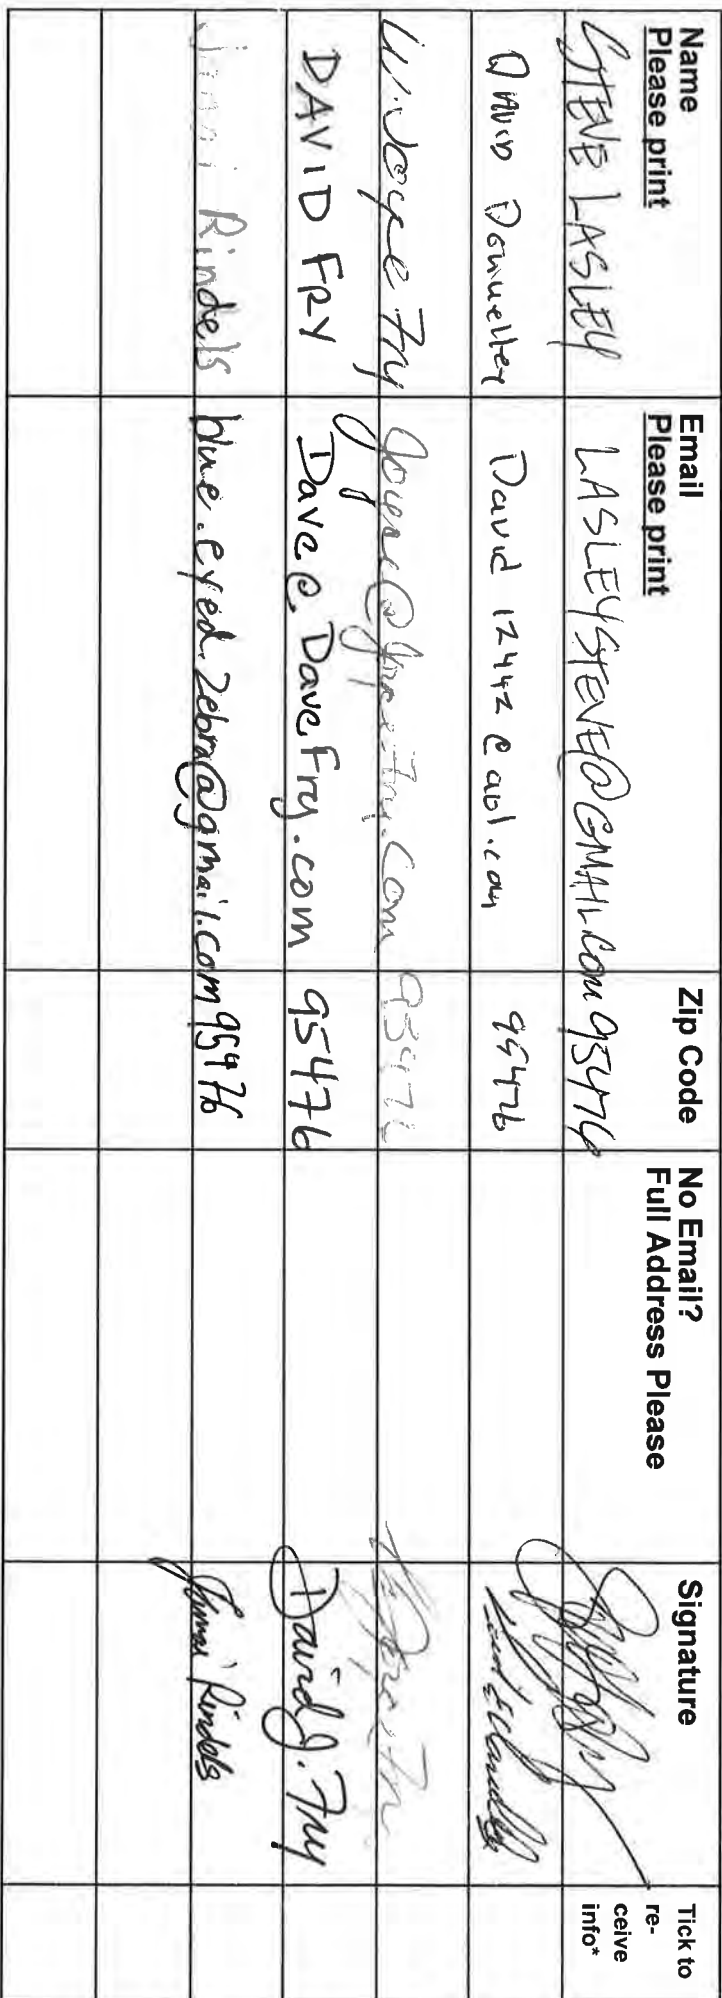 Name Please print Email Please print Zip Code No Email? Full Address Please Signature Tick to re- ceive info*
STEVE LASLEY LASLEYSTEVE@GMAIL.COM 95476
DAVID David12442@aol.com 95476
W. Joyce Fry 95476
DAVID FRY Dave@DaveFry.com 95476 David J. Fry
Jamai Rindels blue.eyed.zebra@gmail.com 95476 Jamai Rindels